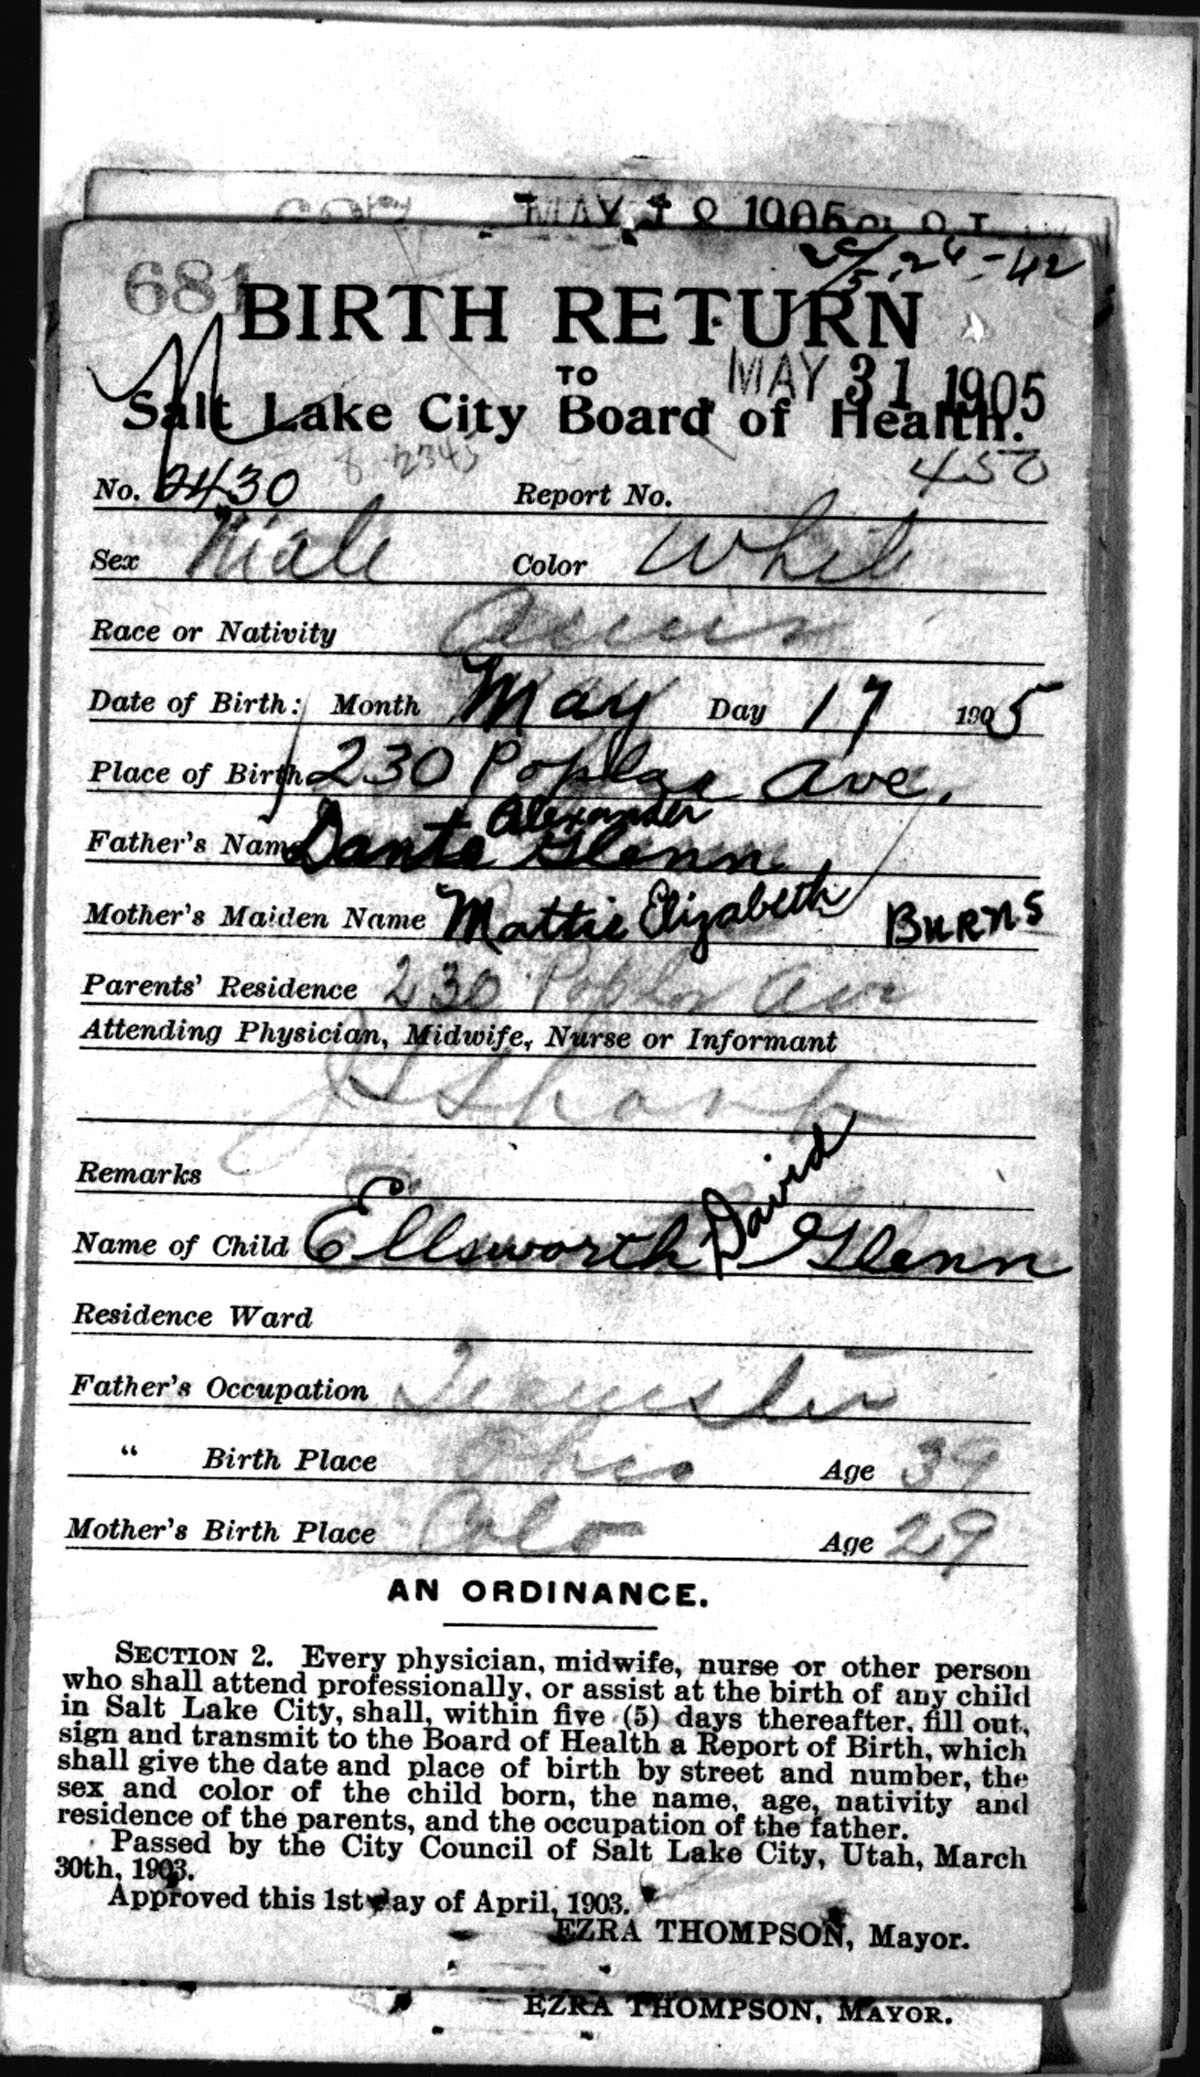 MAY 18 1905
681
5-26-42
BIRTH RETURN
TO
MAY 31 1905
Salt Lake City Board of Health.
8 2345
450
No. 2430 Report No.
Sex Male Color Whit
Race or Nativity Amer
Date of Birth: Month May Day 17 1905
Place of Birth 230 Poplar Ave.
Father's Name Dante Alexander Glenn
Mother's Maiden Name Mattie Elizabeth Burns
Parents' Residence 230 Poplar Ave
Attending Physician, Midwife, Nurse or Informant
Remarks
Name of Child Ellsworth David Glenn
Residence Ward
Father's Occupation Teamster
“ Birth Place Ohio Age 39
Mother's Birth Place Colo Age 29
AN ORDINANCE.
SECTION 2. Every physician, midwife, nurse or other person
who shall attend professionally, or assist at the birth of any child
in Salt Lake City, shall, within five (5) days thereafter, fill out,
sign and transmit to the Board of Health a Report of Birth, which
shall give the date and place of birth by street and number, the
sex and color of the child born, the name, age, nativity and
residence of the parents, and the occupation of the father.
Passed by the City Council of Salt Lake City, Utah, March
30th, 1903.
Approved this 1st day of April, 1903.
EZRA THOMPSON, Mayor.
EZRA THOMPSON, MAYOR.